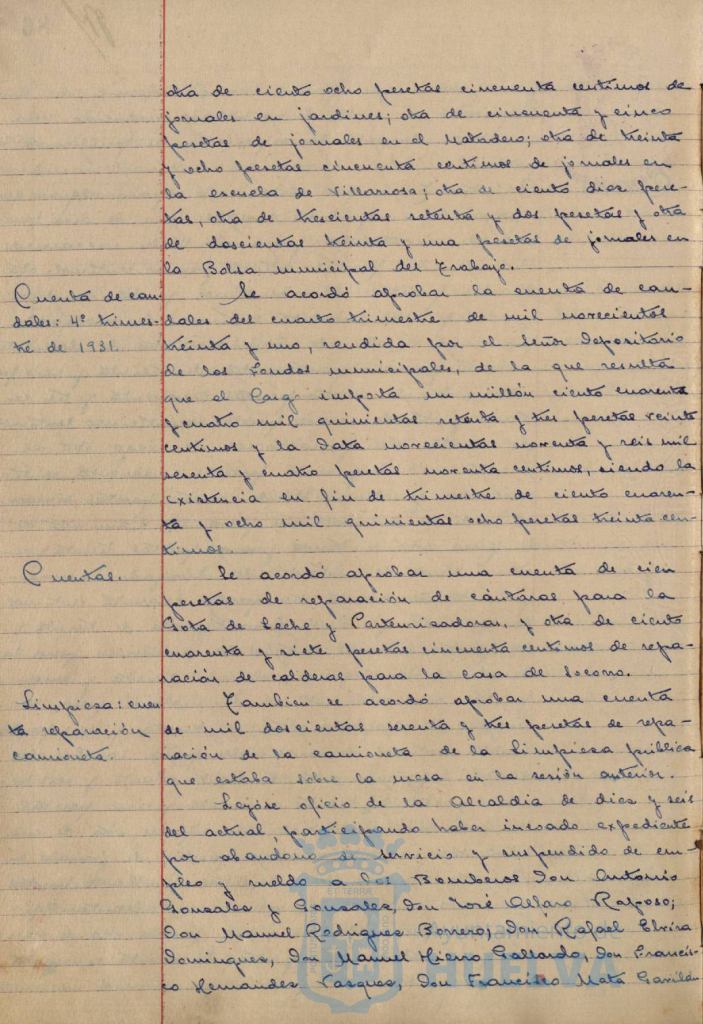 otra de ciento ocho pesetas cincuenta centimos de
jornales en jardines; otra de cincuenta y cinco
pesetas de jornales en el Matadero; otra de treinta
y ocho pesetas cincuenta centimos de jornales en
la escuela de Villarrosa; otra de ciento diez pese-
tas, otra de trescientas setenta y dos pesetas y otra
de doscientas treinta y una pesetas de jornales en
la Bolsa municipal del Trabajo.
Cuenta de cau-
dales: 4º trimes-
tre de 1931.
Se acordó aprobar la cuenta de cau-
dales del cuarto trimestre de mil novecientos
treinta y uno, rendida por el Señor Depositario
de los Fondos municipales, de la que resulta
que el Cargo importa un millón ciento cuarenta
y cuatro mil quinientas setenta y tres pesetas veinte
centimos y la Data novecientas noventa y seis mil
sesenta y cuatro pesetas noventa centimos, siendo la
existencia en fin de trimestre de ciento cuaren-
ta y ocho mil quinientas ocho pesetas treinta cen-
timos.
Cuentas.
Se acordó aprobar una cuenta de cien
pesetas de reparación de cántaras para la
Gota de Leche y Pasteurizadoras, y otra de ciento
cuarenta y siete pesetas cincuenta centimos de repa-
ración de calderas para la casa de Socorro.
Limpieza: cuen-
ta reparación
camioneta.
Tambien se acordó aprobar una cuenta
de mil doscientas sesenta y tres pesetas de repa-
ración de la camioneta de la Limpieza pública
que estaba sobre la mesa en la sesión anterior.
Leyóse oficio de la Alcaldia de diez y seis
del actual, participando haber incoado expediente
por abandono de servicio y suspendido de em-
pleo y sueldo a los Bomberos Don Antonio
Gonzalez y Gonzalez, Don José Alfaro Raposo;
Don Manuel Rodriguez Borrero; Don Rafael Elvira
Dominguez, Don Manuel Hierro Gallardo, Don Francis-
co Hernandez Vazquez, Don Francisco Mata Gavilán
HUELVA